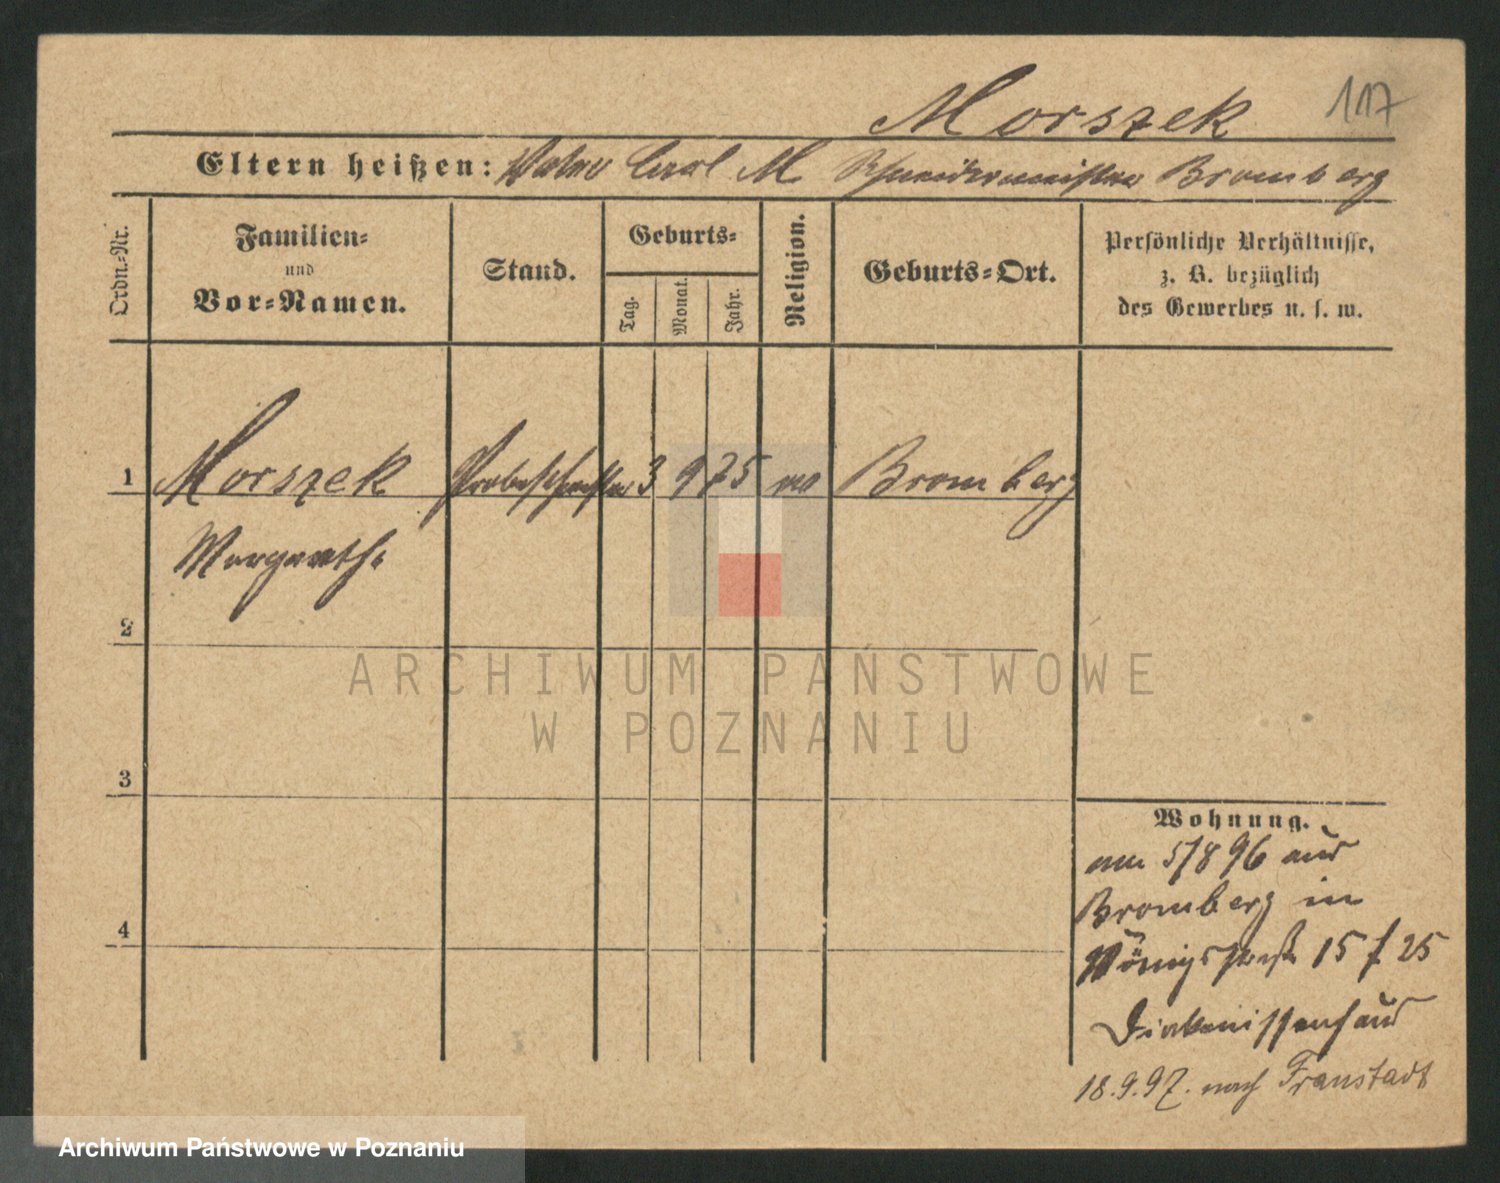 Morszek 117
Eltern heißen: Vater Carl M Schneidermeister Bromberg
Ordn.-Nr.
Familien-
und
Vor-Namen.
Stand.
Geburts-
Tag.
Monat.
Jahr.
Religion.
Geburts-Ort.
Persönliche Verhältnisse,
z. B. bezüglich
des Gewerbes u. s. w.
1 Morszek Probeschwester 3 9 75 ev Bromberg
Margarethe
2
3
4
Wohnung.
am 5/8 96 aus
Bromberg in
Königstraße 15 f 25
Diakonissenhaus
18.9.97. nach Fraustadt
ARCHIWUM PAŃSTWOWE
W POZNANIU
Archiwum Państwowe w Poznaniu